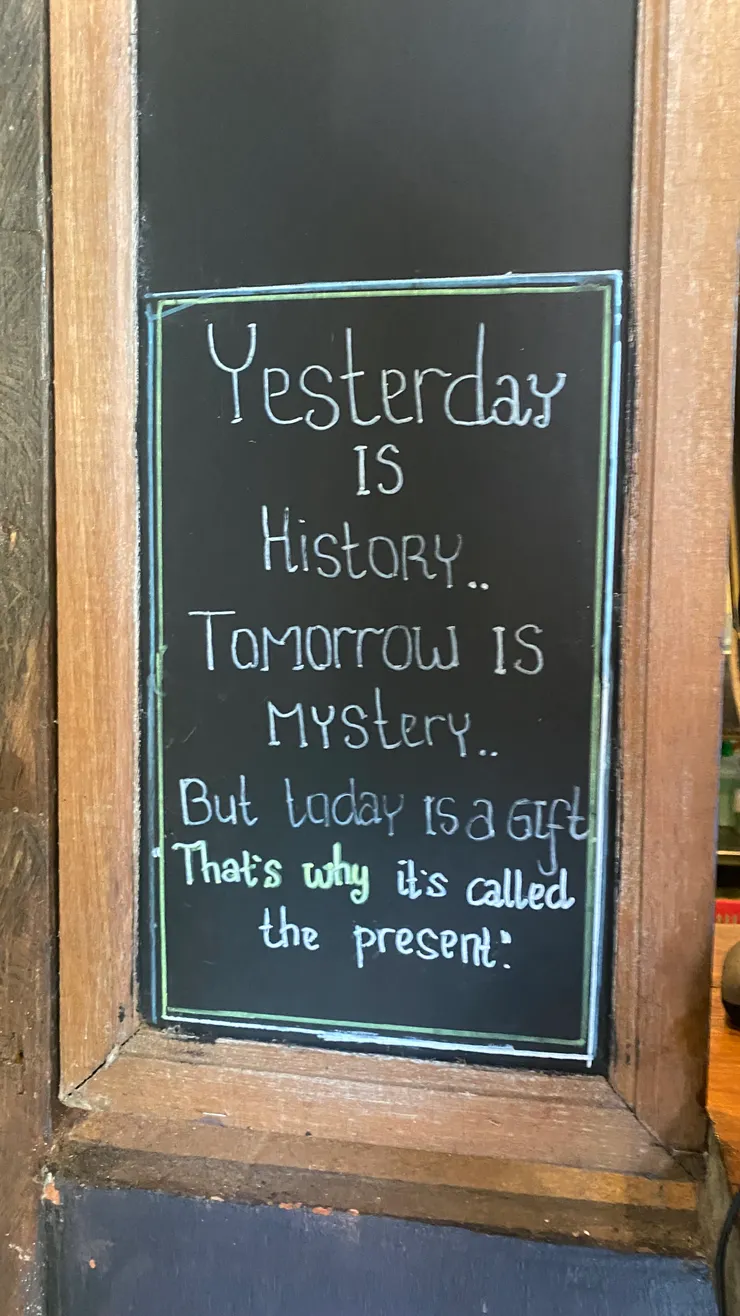 Yesterday
IS
History..
Tomorrow IS
Mystery..
But today is a Gift
That's why it's called
the present: